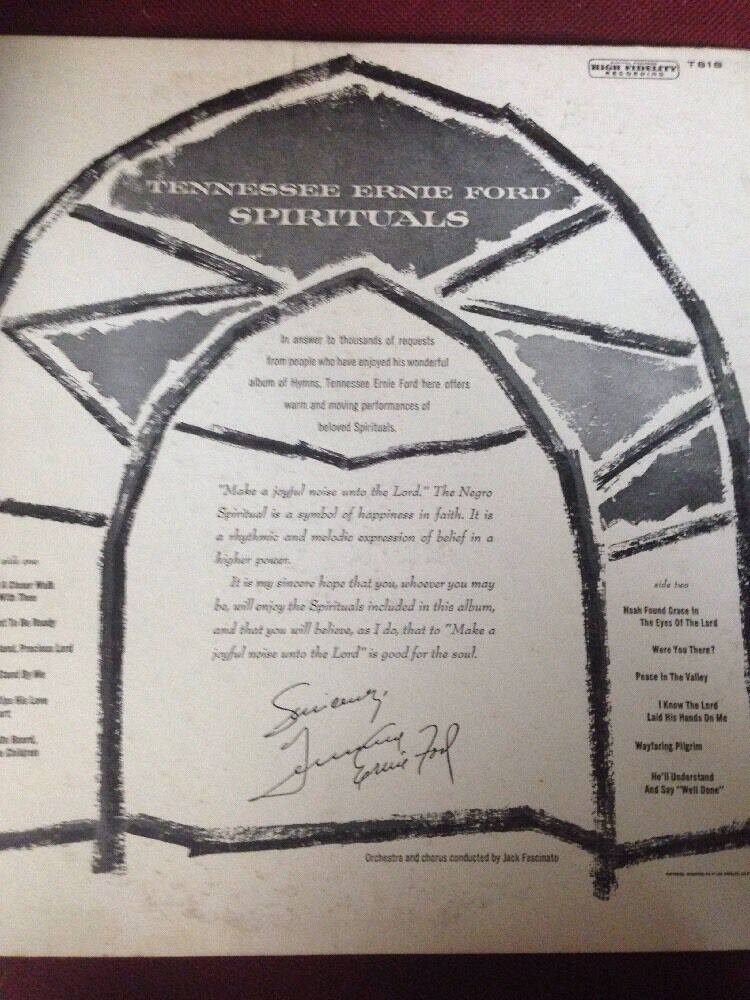 HIGH FIDELITY
RECORDING
T818
TENNESSEE ERNIE FORD
SPIRITUALS
In answer to thousands of requests
from people who have enjoyed his wonderful
album of Hymns, Tennessee Ernie Ford here offers
warm and moving performances of
beloved Spirituals.
"Make a joyful noise unto the Lord." The Negro
Spiritual is a symbol of happiness in faith. It is
a rhythmic and melodic expression of belief in a
higher power.
It is my sincere hope that you, whoever you may
be, will enjoy the Spirituals included in this album,
and that you will believe, as I do, that to "Make a
joyful noise unto the Lord" is good for the soul.
Sincerely,
Tennessee
Ernie Ford
side one
Closer Walk
With Thee
To Be Ready
Precious Lord
Stand By Me
His Love
Board,
Children
side two
Noah Found Grace In
The Eyes Of The Lord
Were You There?
Peace In The Valley
I Know The Lord
Laid His Hands On Me
Wayfaring Pilgrim
He'll Understand
And Say "Well Done"
Orchestra and chorus conducted by Jack Fascinato